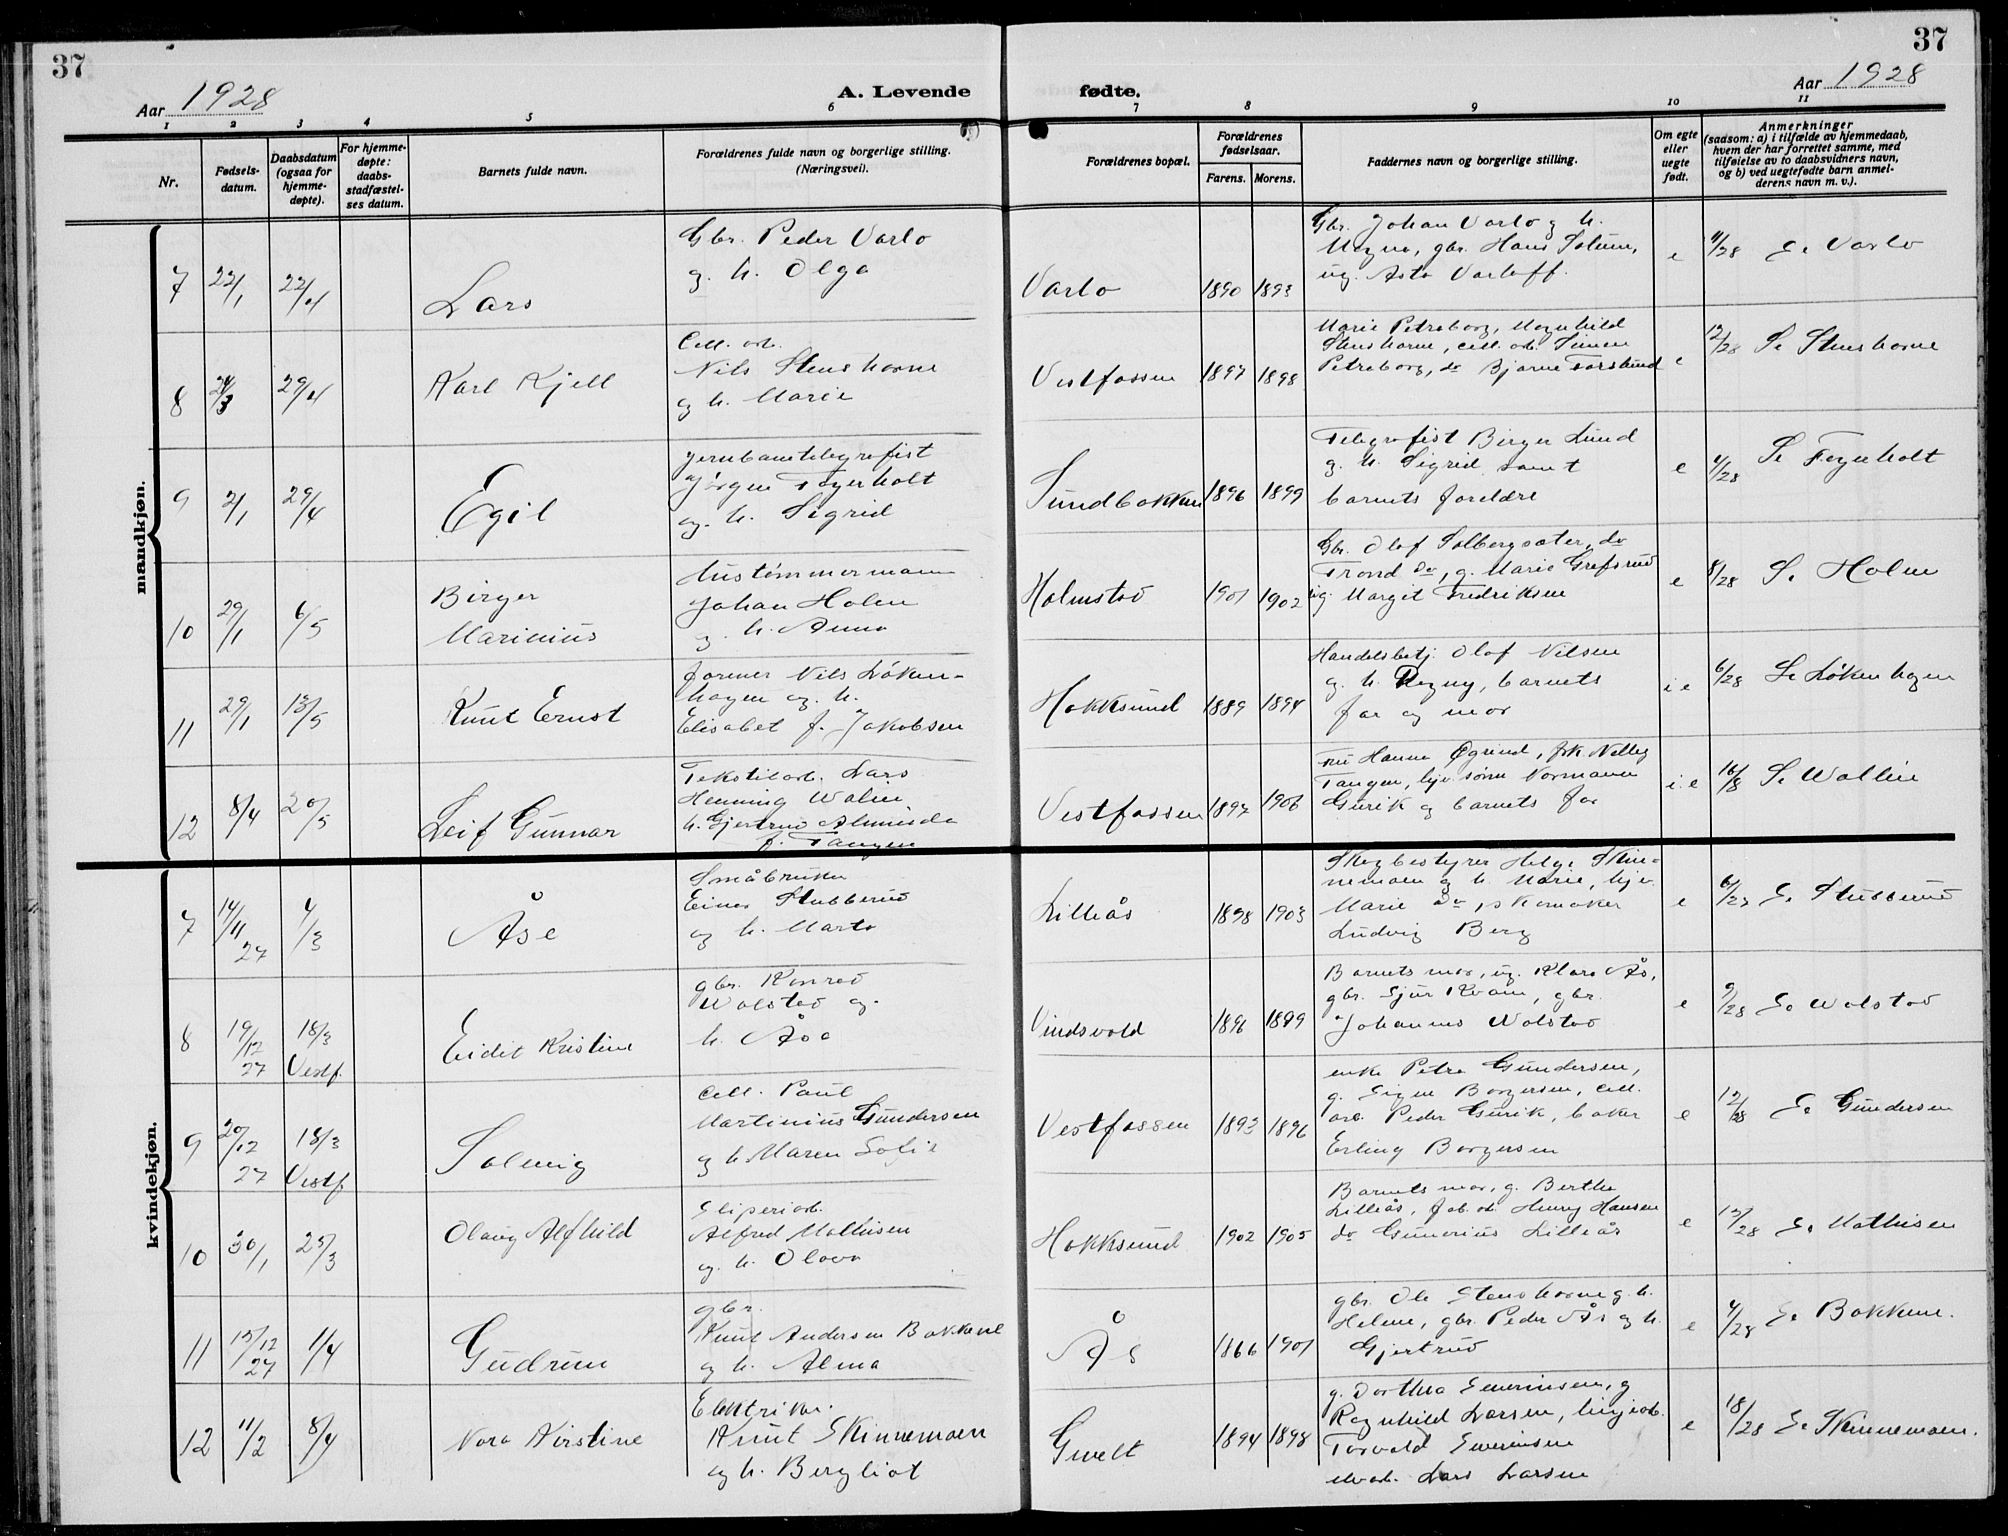 37
37
Aar 1928
A. Levende
fødte.
Aar 1928
1 2 3 4 5 6 7 8 9 10 11
Nr.
Fødsels-
datum.
Daabsdatum
(ogsaa for
hjemme-
døpte).
For hjemme-
døpte:
daabs-
stadfæstel-
ses datum.
Barnets fulde navn.
Forældrenes fulde navn og borgerlige stilling.
(Næringsvei).
Forældrenes bopæl.
Forældrenes
fødselsaar.
Farens. Morens.
Faddernes navn og borgerlige stilling.
Om egte
eller
uegte
født.
Anmerkninger
(saasom: a) i tilfælde av hjemmedaab,
hvem der har forrettet samme, med
tilføielse av to daabsvidners navn,
og b) ved uegtefødte barn anmel-
derens navn m. v.).
mandkjøn.
7 22/1 22/4 Lars
Gbr. Peder Varlo
og h. Olga
Varlo 1890 1893
Gbr. Johan Varlo og h.
Magna, gbr. Hans Solum,
ug. Asta Varlo ff.
e 11/28 S. Varlo
8 24/3 29/4 Karl Kjell
Cell. arb.
Nils Stenshorne
og h. Marie
Vestfossen 1897 1898
Marie Petraborg, Magnhild
Stenshorne, cell. arb. Simen
Petraborg, do Bjarne Forslund
e 12/28 S. Stenshorne
9 2/1 29/4 Egil
jernbanetelegrafist
Jørgen Fogerholt
og h. Sigrid
Sundbakken 1896 1899
Telegrafist Birger Lund
g. h. Sigrid samt
barnets foreldre
e 4/28 S. Fogerholt
10 29/1 6/5 Birger
Marinius
Hustømmermann
Johan Holm
og h. Anna
Holmstad 1901 1902
Gbr. Olaf Solbergsæter, do
Trond do, g. Marie Grefsrud
ug. Margit Fredriksen
e 8/28 S. Holm
11 29/1 13/5 Knut Ernst
former Nils Løken-
hagen og h.
Elisabet f. Jakobsen
Hokksund 1889 1894
Handelsbetj. Olaf Nilsen
g. h. Dagny, barnets
far og mor
i.e 6/28 S. Løkenhagen
12 8/4 20/5 Leif Gunnar
Tekstilarb. Lars
Henning Walin
h. Gjertrud Alminda
f. Tangen
Vestfossen 1897 1906
Fru Hanna Øgrind, frk. Nelly
Tangen, hjv. sønn Normann
Gurik og barnets far
i.e 16/8 S. Wallin
kvindekjøn.
7 14/11 27 4/3 Åse
Småbruker
Einar Stubberud
og h. Marta
Lilleås 1898 1903
Skogbestyrer Helge Skin-
nemoen og h. Marie, hjv.
Marie do, skomaker
Ludvig Berg
e 6/28 S. Stubberud
8 19/12 27 18/3 Vestf. Eidit Kristine
gbr. Konrad
Wolstad og
h. Åsa
Vindsvold 1896 1899
Barnets mor, ug. Klara Ås,
gbr. Sjur Kvam, gbr.
Johannes Wolstad
e 9/28 S. Wolstad
9 20/12 27 18/3 Vestf. Solveig
Cell. Paul
Martinius Gundersen
og h. Maren Sofie
Vestfossen 1893 1896
enke Petra Gundersen,
g. Signe Borgersen, cell.
arb. Peder Gurik, baker
Erling Borgersen
e 12/28 S. Gundersen
10 30/1 25/3 Olaug Alfhild
Sliperiarb.
Alfred Mathisen
og h. Olava
Hokksund 1902 1905
Barnets mor, g. Berthe
Lilleås, fab. arb. Henry Hansen
do Gunerius Lilleås
e 12/28 S. Mathisen
11 15/12 27 1/4 Gudrun
gbr.
Knut Andersen Bakkene
og h. Alma
Ås 1866 1901
gbr. Ole Stenshorne g. h.
Helene, gbr. Peder Ås og h.
Gjertrud
e 4/28 S. Bakkene.
12 11/2 8/4 Nora Kirstine
Elektriker.
Knut Skinnemoen
og h. Bergliot
1894 1898
g. Dorthea Severinsen, g
Ragnhild Larsen, linjearb.
Torvald Severinsen
Lars Larsen
e 18/28 S. Skinnemoen.